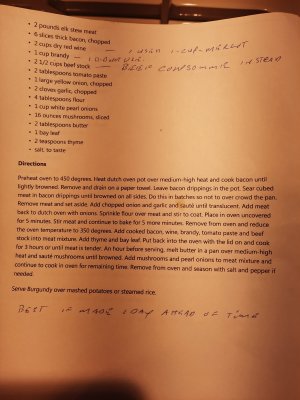 • 2 pounds elk stew meat
• 6 slices thick bacon, chopped
• 2 cups dry red wine — I USED 1-CUP-MERLOT
• 1 cup brandy —
• 2 1/2 cups beef stock — BEEF CONSOMME INSTEAD
• 2 tablespoons tomato paste
• 1 large yellow onion, chopped
• 2 cloves garlic, chopped
• 4 tablespoons flour
• 1 cup white pearl onions
• 16 ounces mushrooms, sliced
• 2 tablespoons butter
• 1 bay leaf
• 2 teaspoons thyme
• salt, to taste
Directions
Preheat oven to 450 degrees. Heat dutch oven pot over medium-high heat and cook bacon until
lightly browned. Remove and drain on a paper towel. Leave bacon drippings in the pot. Sear cubed
meat in bacon drippings until browned on all sides. Do this in batches so not to over crowd the pan.
Remove meat and set aside. Add chopped onion and garlic and sauté until translucent. Add meat
back to dutch oven with onions. Sprinkle flour over meat and stir to coat. Place in oven uncovered
for 5 minutes. Stir meat and continue to bake for 5 more minutes. Remove from oven and reduce
the oven temperature to 350 degrees. Add cooked bacon, wine, brandy, tomato paste and beef
stock into meat mixture. Add thyme and bay leaf. Put back into the oven with the lid on and cook
for 3 hours or until meat is tender. An hour before serving, melt butter in a pan over medium-high
heat and sauté mushrooms until browned. Add mushrooms and pearl onions to meat mixture and
continue to cook in oven for remaining time. Remove from oven and season with salt and pepper if
needed.
Serve Burgundy over mashed potatoes or steamed rice.
BEST IF MADE 1 DAY AHEAD OF TIME